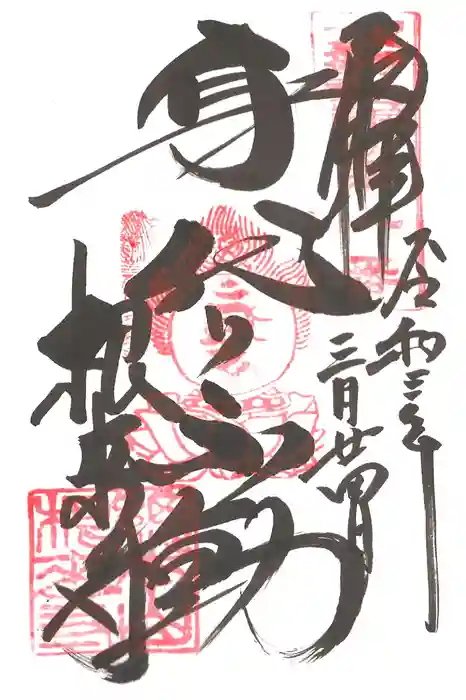 奉拝
令和三年
三月廿四日
身代り不動
根来寺